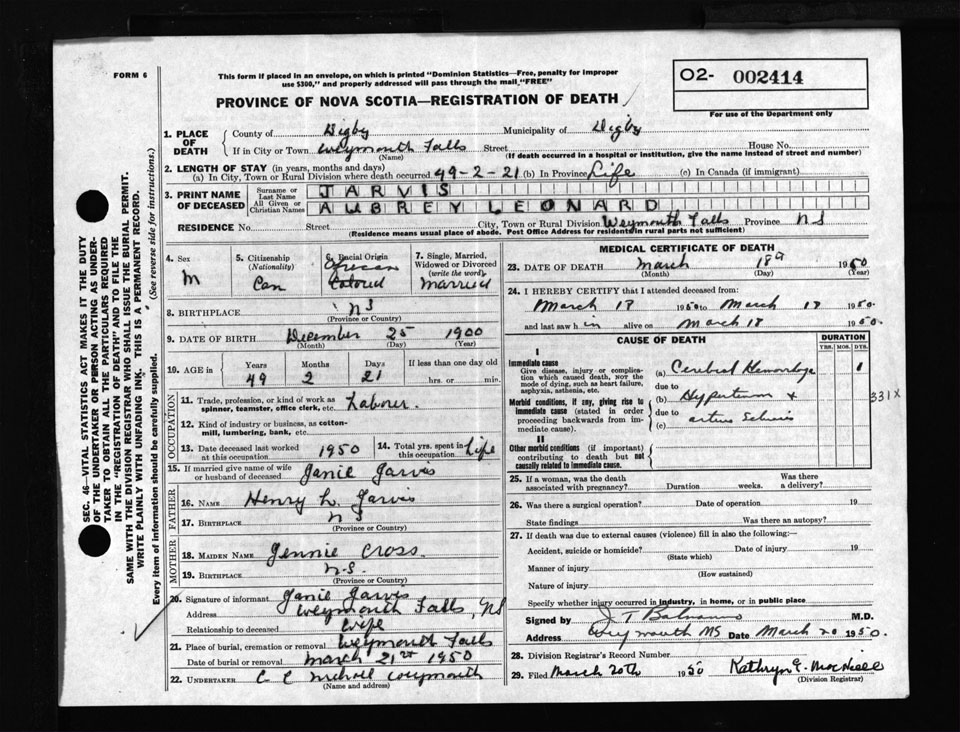 FORM 6
This form if placed in an envelope, on which is printed "Dominion Statistics—Free, penalty for improper
use $300," and properly addressed will pass through the mail "FREE"
O2- 002414
For use of the Department only
PROVINCE OF NOVA SCOTIA—REGISTRATION OF DEATH
SEC. 46—VITAL STATISTICS ACT MAKES IT THE DUTY
OF THE UNDERTAKER OR PERSON ACTING AS UNDER-
TAKER TO OBTAIN ALL THE PARTICULARS REQUIRED
IN THE "REGISTRATION OF DEATH" AND TO FILE THE
SAME WITH THE DIVISION REGISTRAR WHO SHALL ISSUE THE BURIAL PERMIT.
WRITE PLAINLY WITH UNFADING INK. THIS IS A PERMANENT RECORD.
Every item of information should be carefully supplied. (See reverse side for instructions.)
1. PLACE OF DEATH County of Digby Municipality of Digby
If in City or Town Weymouth Falls Street House No.
(Name) (If death occurred in a hospital or institution, give the name instead of street and number)
2. LENGTH OF STAY (in years, months and days)
(a) In City, Town or Rural Division where death occurred 49-2-21 (b) In Province Life (c) In Canada (if immigrant)
3. PRINT NAME OF DECEASED Surname or Last Name JARVIS
All Given or Christian Names AUBREY LEONARD
RESIDENCE No. Street City, Town or Rural Division Weymouth Falls Province NS
(Residence means usual place of abode. Post Office Address for residents in rural parts not sufficient)
4. Sex M
5. Citizenship (Nationality) Can
6. Racial Origin African Colored
7. Single, Married, Widowed or Divorced (write the word) Married
8. BIRTHPLACE NS
(Province or Country)
9. DATE OF BIRTH December 25 1900
(Month) (Day) (Year)
10. AGE in Years Months Days If less than one day old
49 2 21 hrs. or min.
OCCUPATION
11. Trade, profession, or kind of work as
spinner, teamster, office clerk, etc. Laborer.
12. Kind of industry or business, as cotton-
mill, lumbering, bank, etc.
13. Date deceased last worked at this occupation 1950
14. Total yrs. spent in this occupation Life
15. If married give name of wife
or husband of deceased Janie Jarvis
FATHER
16. NAME Henry L. Jarvis
17. BIRTHPLACE NS
(Province or Country)
MOTHER
18. MAIDEN NAME Jennie Cross.
19. BIRTHPLACE N.S.
(Province or Country)
20. Signature of informant Janie Jarvis
Address Weymouth Falls, NS
Relationship to deceased Wife
21. Place of burial, cremation or removal Weymouth Falls
Date of burial or removal March 21st 1950
22. UNDERTAKER C C Nicholl Weymouth
(Name and address)
MEDICAL CERTIFICATE OF DEATH
23. DATE OF DEATH March 18th 1950
(Month) (Day) (Year)
24. I HEREBY CERTIFY that I attended deceased from:
March 18 1950 to March 18 1950.
and last saw him alive on March 18 1950.
CAUSE OF DEATH DURATION
YRS. MOS. DYS.
I
Immediate cause
Give disease, injury or complica-
tion which caused death, not the
mode of dying, such as heart failure,
asphyxia, asthenia, etc.
(a) Cerebral Hemorrhage 1
due to
Morbid conditions, if any, giving rise to
immediate cause (stated in order
proceeding backwards from im-
mediate cause).
(b) Hypertension + 331X
due to
(c)
II
Other morbid conditions (if important)
contributing to death but not
causally related to immediate cause.
25. If a woman, was the death
associated with pregnancy? Duration weeks. Was there a delivery?
26. Was there a surgical operation? Date of operation 19
State findings Was there an autopsy?
27. If death was due to external causes (violence) fill in also the following:—
Accident, suicide or homicide? Date of injury 19
(State which)
Manner of injury
(How sustained)
Nature of injury
Specify whether injury occurred in industry, in home, or in public place
Signed by M.D.
Address Weymouth NS Date March 20 1950.
28. Division Registrar's Record Number
29. Filed March 20th 1950 Kathryn E. MacNeill
(Division Registrar)